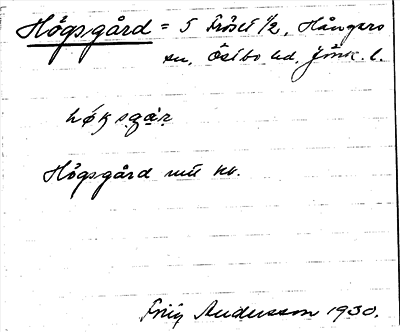 Högsgård = 5 Fröset 1/2, Hångers
sn, Östbo hd, Jönk. l.
høksgar
Högsgård mtl kb.
Frig Andersson 1930.